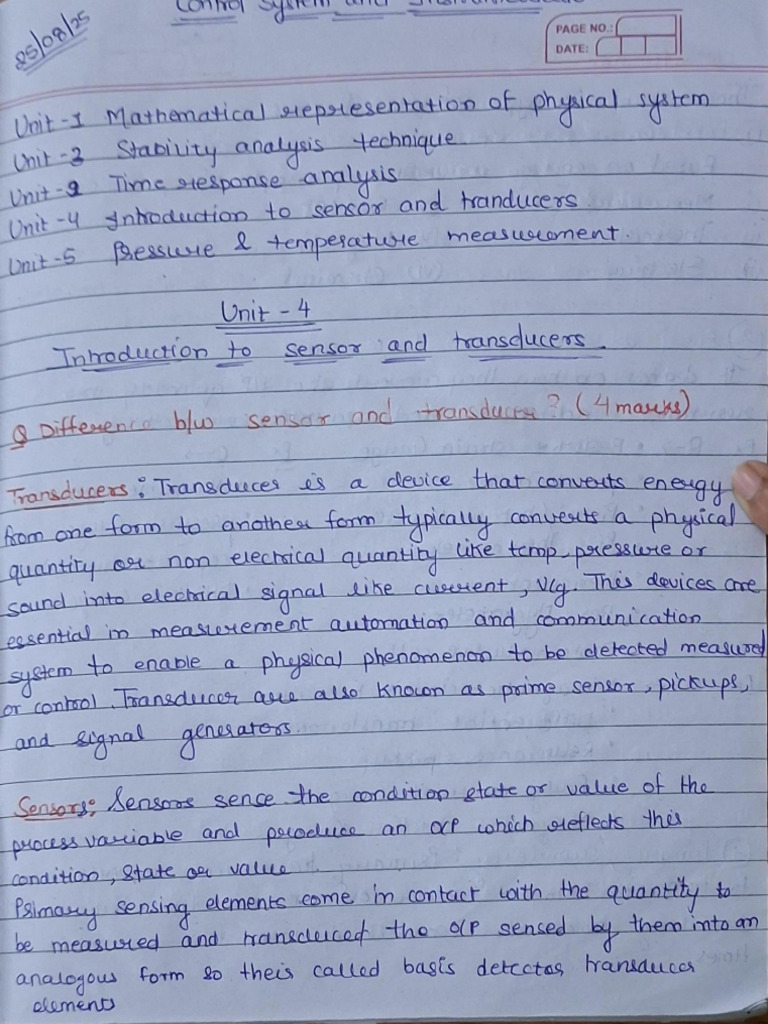 Control System and
25/08/25
PAGE NO.:
DATE:
Unit-1 Mathematical representation of physical system
Unit-3 Stability analysis technique
Unit-2 Time response analysis
Unit-4 Introduction to sensor and tranducers
Unit-5 Pressure & temperature measurement.
Unit-4
Introduction to sensor and transducers.
Q Difference b/w sensor and transducer? (4 marks)
Transducers: Transducer is a device that converts energy
from one form to another form typically converts a physical
quantity or non electrical quantity like temp, pressure or
sound into electrical signal like current, Vlg. This devices are
essential in measurement automation and communication
system to enable a physical phenomenon to be detected measured
or control. Transducer are also known as prime sensor, pickups,
and signal generators
Sensors: Sensors sence the condition state or value of the
process variable and produce an o/p which reflects this
condition, state or value.
Primary sensing elements come in contact with the quantity to
be measured and transduced the o/p sensed by them into an
analogous form so theis called basis detector transducer
elements